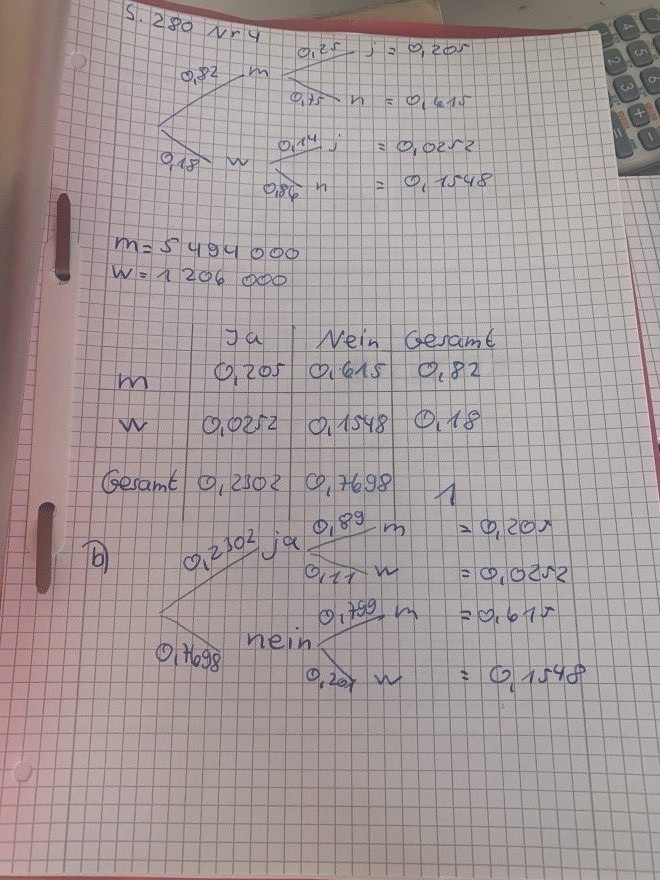 S. 280 Nr 4
0,25 j = 0,205
0,82 m
0,75 n = 0,615
0,14 j = 0,0252
0,18 w
0,86 n = 0,1548
m = 5 494 000
w = 1 206 000
Ja Nein Gesamt
m 0,205 0,615 0,82
w 0,0252 0,1548 0,18
Gesamt 0,2302 0,7698 1
0,89 m = 0,205
b) 0,2302 ja
0,11 w = 0,0252
0,799 m = 0,615
0,7698 nein
0,201 w = 0,1548